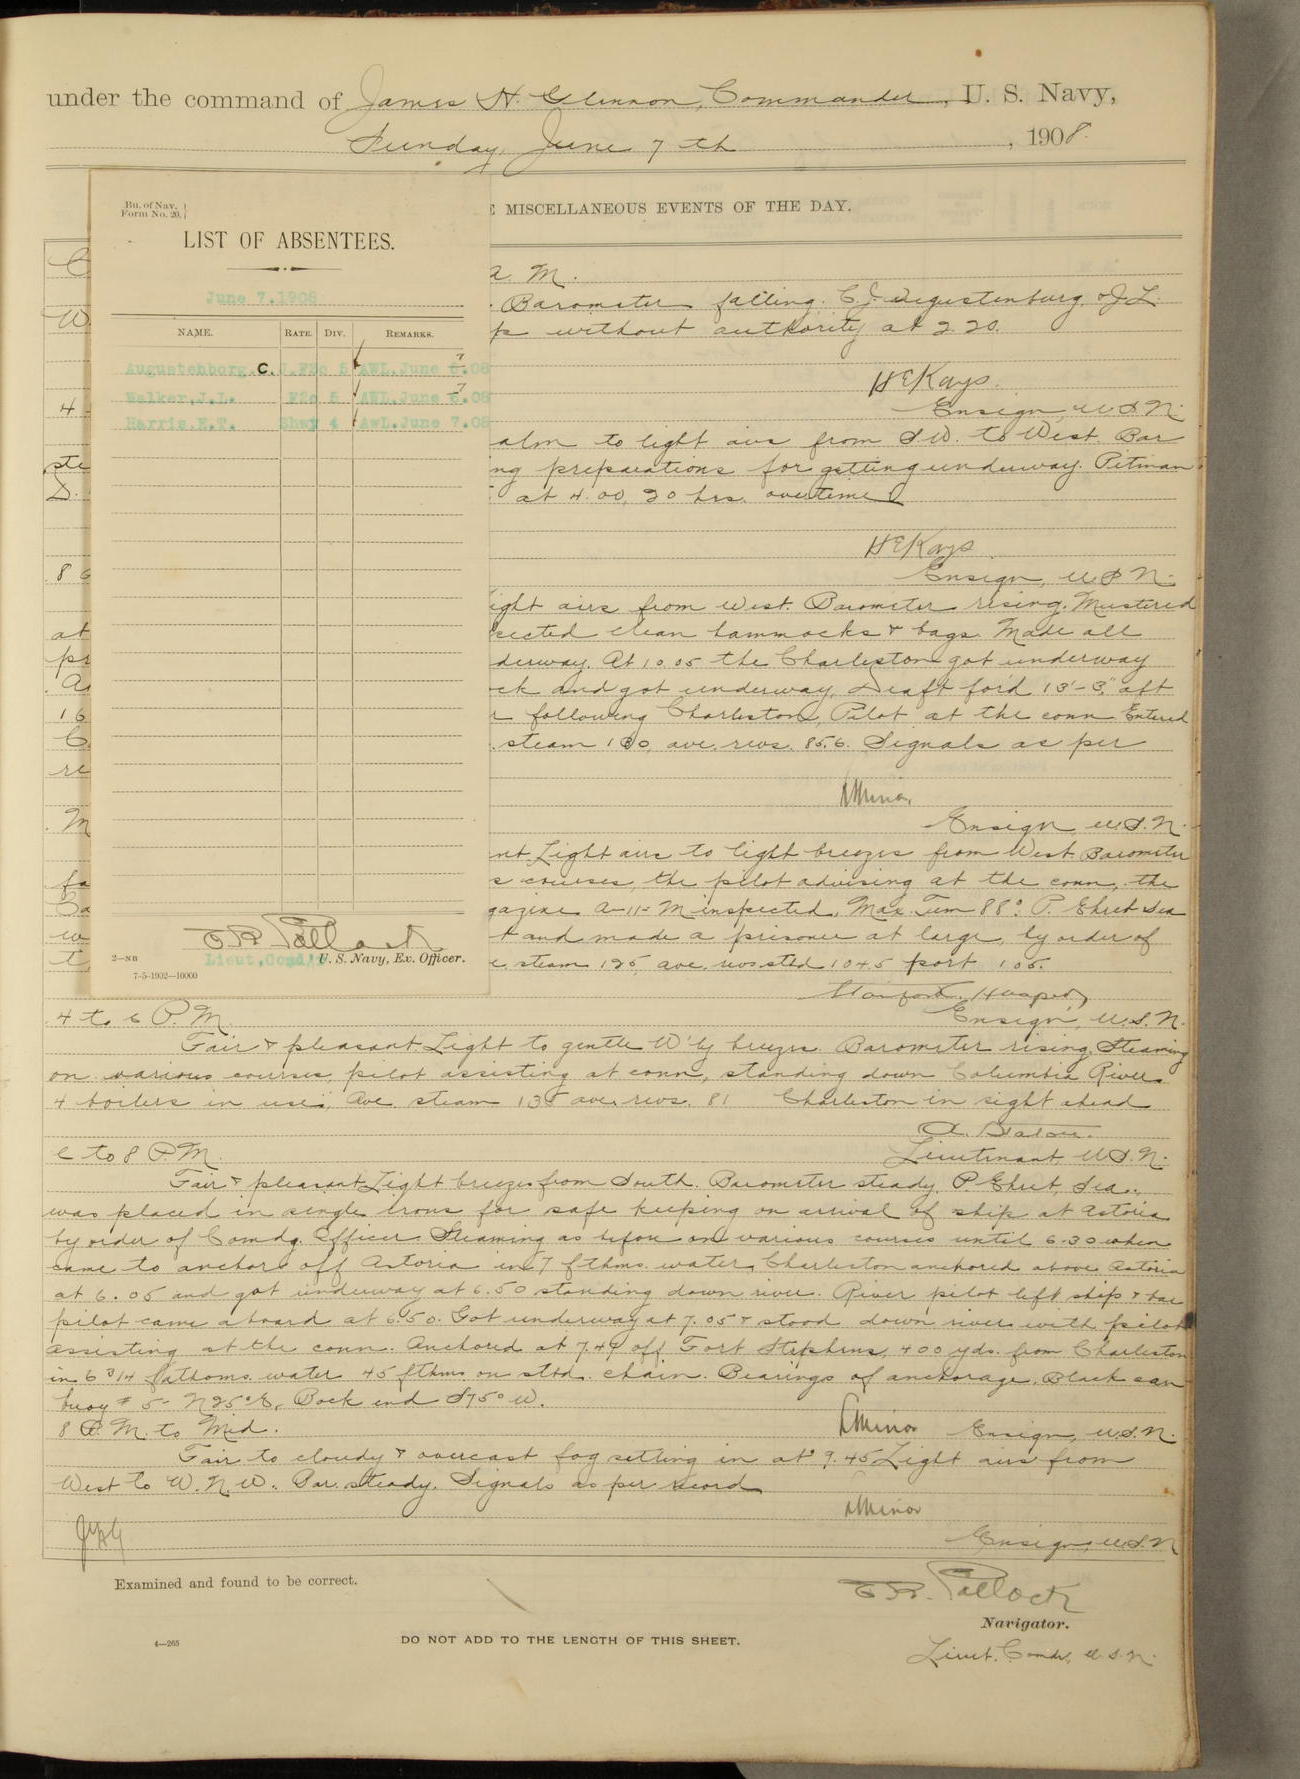 under the command of James H. Glennon, Commander, U. S. Navy,
Sunday, June 7th, 1908
MISCELLANEOUS EVENTS OF THE DAY.
Bu. of Nav.
Form No. 20.
LIST OF ABSENTEES.
June 7.1908
NAME. RATE. DIV. REMARKS.
Augustenborg.C. 5 AWL.June 7.08
Walker,J.L. F2c 5 AWL.June 7.08
Harris.E.T. 4 AwL.June 7.08
U. S. Navy, Ex. Officer.
Lieut.Comdr
2—NB
7-5-1902—10000
M.
Barometer falling. C. J.
without authority at 2.20.
H E Kays.
Ensign, U.S.N.
to light airs from S.W. to West. Bar
preparations for getting underway. Pitman
at 4.00, 20 hrs. overtime
H E Kays.
Ensign, U.S.N.
airs from West. Barometer rising. Mustered
clean hammocks & bags. Made all
At 10.05 the Charleston got underway
and got underway, Draft for'd 13'-3", aft
following Charleston, Pilot at the conn Entered
steam 130, ave. revs. 85.6. Signals as per
Minor
Ensign, U.S.N.
Light airs to light breezes from West. Barometer
courses, the pilot advising at the conn, the
A-11-M inspected, Max. Tem 88°. P. Ehret Sea
and made a prisoner at large, by order of
steam 125, ave. revs stbd 104.5 port 105.
Ensign, U.S.N.
4 to 6 P.M.
Fair & pleasant. Light to gentle W'ly breezes. Barometer rising, Steaming
on various courses, pilot assisting at conn, standing down Columbia River.
4 boilers in use, Ave. steam 135 ave. revs. 81 Charleston in sight ahead
Lieutenant U.S.N.
6 to 8 P.M.
Fair & pleasant. Light breezes from South. Barometer steady. P. Ehret, Sea.,
was placed in single irons for safe keeping on arrival of ship at Astoria
by order of Comdg. Officer. Steaming as before on various courses until 6.30 when
came to anchor off Astoria in 7 fthms. water, Charleston anchored above Astoria
at 6.05 and got underway at 6.50 standing down river. River pilot left ship & bar
pilot came aboard at 6.50. Got underway at 7.05 & stood down river with pilot
assisting at the conn. Anchored at 7.49 off Fort Stephens, 400 yds. from Charleston
in 6 3/4 fathoms water 45 fthms on stbd. chain. Bearings of anchorage, Black can
buoy # 5- N25°E, Dock end S75° W.
8 P.M. to Mid.
Minor Ensign, U.S.N.
Fair to cloudy & overcast fog setting in at 9.45 Light airs from
West to W.N.W. Bar. steady. Signals as per record
Minor
Ensign, U.S.N
Examined and found to be correct.
Pollock
Navigator.
Lieut. Comdr, U.S.N.
4—265
DO NOT ADD TO THE LENGTH OF THIS SHEET.